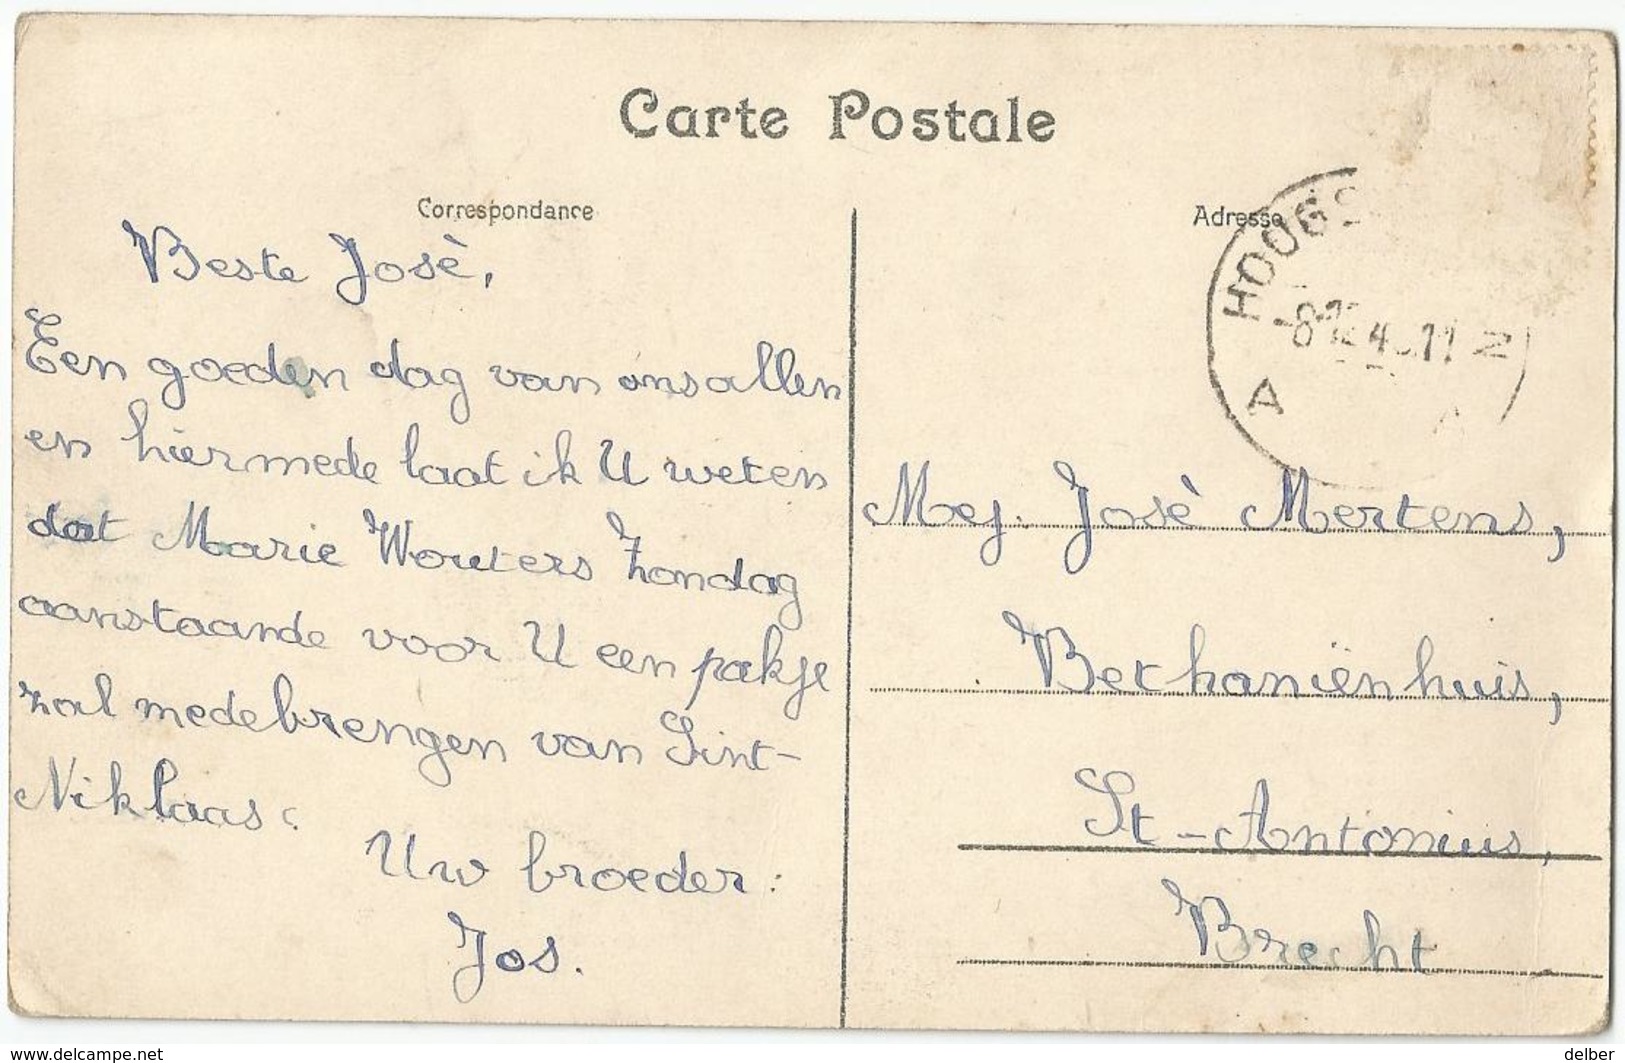 Carte Postale
Correspondance
Adresse
Beste Josè,
Een goeden dag van ons allen
en hiermede laat ik U weten
dat Marie Wouters Zondag
aanstaande voor U een pakje
zal medebrengen van Sint-
Niklaas.
Uw broeder:
Jos.
HOOGS
N
A A
Mej. Josè Mertens,
Bethaniënhuis,
St-Antonius,
Brecht
www.delcampe.net
delber